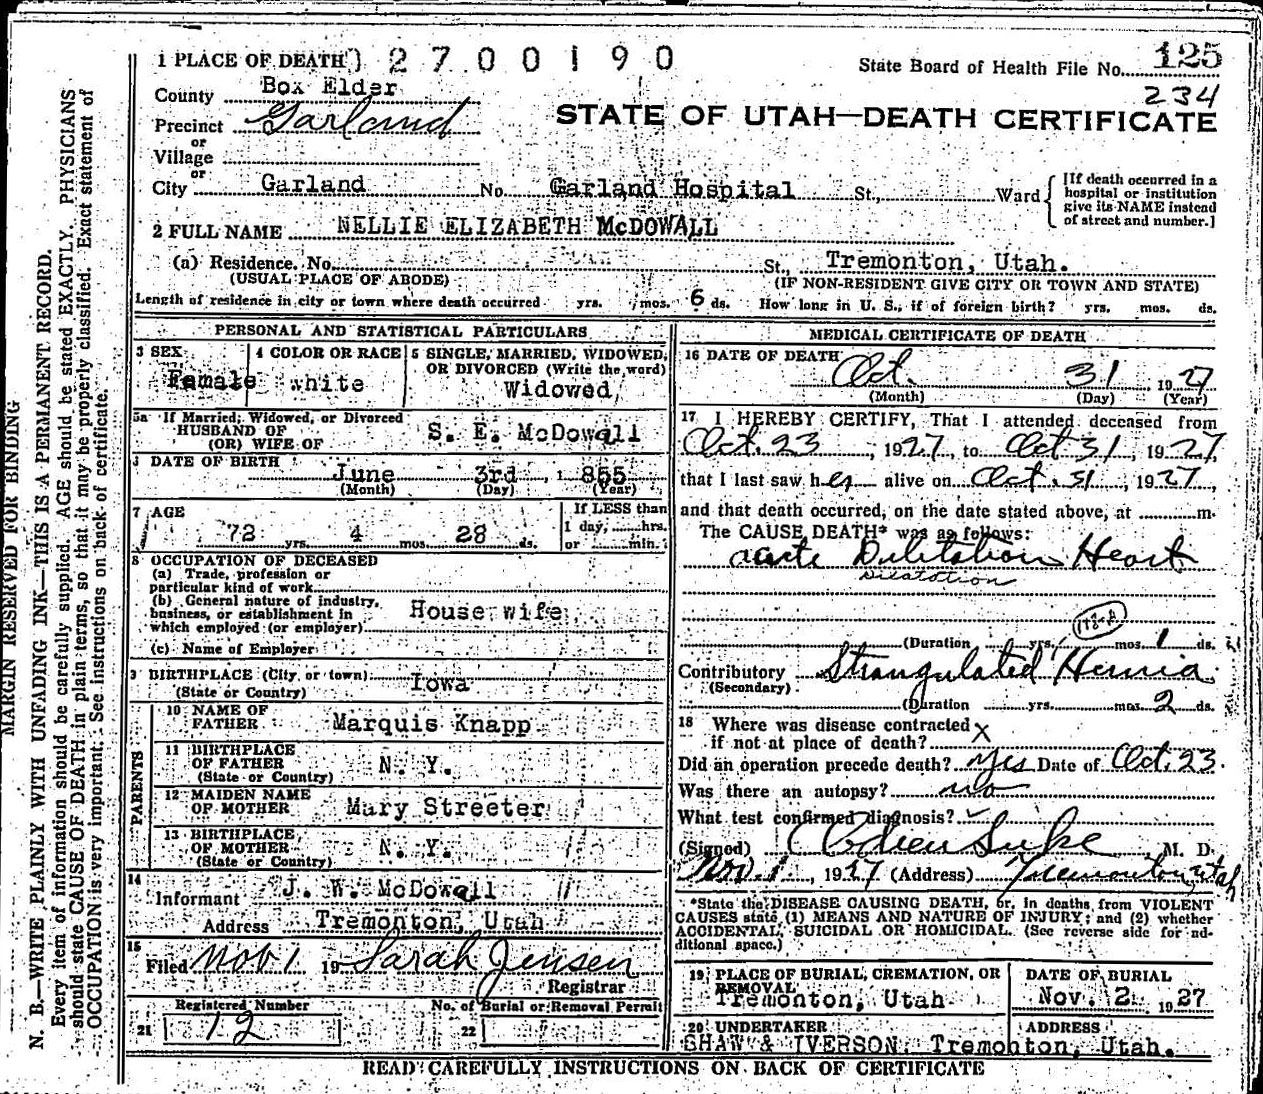 1 PLACE OF DEATH 2700190
State Board of Health File No. 125
234
County Box Elder
STATE OF UTAH—DEATH CERTIFICATE
Precinct Garland
or
Village
or
City Garland No. Garland Hospital St., Ward
[If death occurred in a
hospital or institution
give its NAME instead
of street and number.]
2 FULL NAME NELLIE ELIZABETH McDOWALL
(a) Residence. No. St., Tremonton, Utah.
(USUAL PLACE OF ABODE) (IF NON-RESIDENT GIVE CITY OR TOWN AND STATE)
Length of residence in city or town where death occurred yrs. mos. 6 ds. How long in U. S., if of foreign birth? yrs. mos. ds.
PERSONAL AND STATISTICAL PARTICULARS
3 SEX 4 COLOR OR RACE 5 SINGLE, MARRIED, WIDOWED,
OR DIVORCED (Write the word)
Female white Widowed
5a If Married, Widowed, or Divorced
HUSBAND OF
(OR) WIFE OF S. E. McDowall
DATE OF BIRTH
June 3rd, 1855
(Month) (Day) (Year)
7 AGE If LESS than
1 day, hrs.
72 yrs. 4 mos. 28 ds. or min.
8 OCCUPATION OF DECEASED
(a) Trade, profession or
particular kind of work
(b) General nature of industry,
business, or establishment in
which employed (or employer) Housewife
(c) Name of Employer
9 BIRTHPLACE (City, or town)
(State or Country) Iowa
PARENTS
10 NAME OF
FATHER Marquis Knapp
11 BIRTHPLACE
OF FATHER N. Y.
(State or Country)
12 MAIDEN NAME
OF MOTHER Mary Streeter
13 BIRTHPLACE
OF MOTHER N. Y.
(State or Country)
14
Informant J. W. McDowall
Address Tremonton, Utah
15
Filed Nov 1 19 Sarah Jensen
Registrar
Registered Number No. of Burial or Removal Permit
21 12 22
MEDICAL CERTIFICATE OF DEATH
16 DATE OF DEATH
Oct. 31 1927
(Month) (Day) (Year)
17 I HEREBY CERTIFY, That I attended deceased from
Oct. 23, 1927, to Oct 31, 1927,
that I last saw her alive on Oct. 31, 1927,
and that death occurred, on the date stated above, at m.
The CAUSE DEATH* was as follows:
acute Dulitation Heart
Dilatation
(Duration yrs. mos. 1 ds.
Contributory Strangulated Hernia
(Secondary)
(Duration yrs. mos. 2 ds.
18 Where was disease contracted
if not at place of death? X
Did an operation precede death? Yes Date of Oct. 23.
Was there an autopsy? no
What test confirmed diagnosis?
(Signed) Luke M. D.
Nov. 1, 1927 (Address) Tremonton, Utah
*State the DISEASE CAUSING DEATH, or, in deaths from VIOLENT
CAUSES state (1) MEANS AND NATURE OF INJURY; and (2) whether
ACCIDENTAL, SUICIDAL OR HOMICIDAL. (See reverse side for ad-
ditional space.)
19 PLACE OF BURIAL, CREMATION, OR
REMOVAL
Tremonton, Utah
DATE OF BURIAL
Nov. 2 1927
20 UNDERTAKER ADDRESS
SHAW & IVERSON. Tremonton, Utah.
READ CAREFULLY INSTRUCTIONS ON BACK OF CERTIFICATE
MARGIN RESERVED FOR BINDING
N. B.—WRITE PLAINLY WITH UNFADING INK—THIS IS A PERMANENT RECORD.
Every item of information should be carefully supplied. AGE should be stated EXACTLY. PHYSICIANS
should state CAUSE OF DEATH in plain terms, so that it may be properly classified. Exact statement of
OCCUPATION is very important. See instructions on back of certificate.